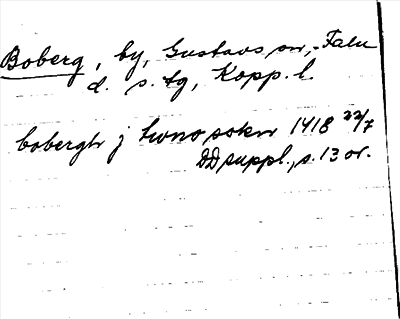 Boberg, by, Gustavs sn, Falu
d. s. tg, Kopp. l.
bobergh j swno sokn 1418 22/7
DD suppl., s. 13 or.